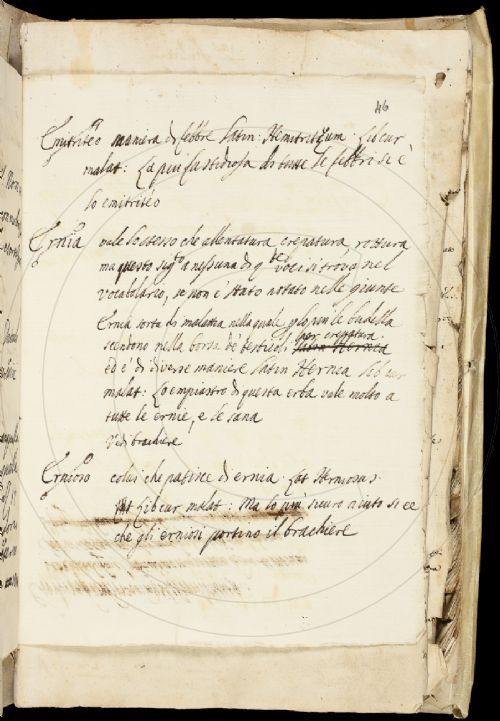 46
Emitriteo maniera di febbre Latin: Hemitriteum. Lib cur
malat: La più fastidiosa di tutte le febbri si è
lo emitriteo
Ernia vale lo stesso che allentatura crepatura rottura
ma questo sig.to a nessuna di q.te voci si trova nel
vocabolario, se non è stato notato nelle giunte
Ernia sorta di malattia nella quale le budella
scendono nella borsa de' testicoli per crepatura.
Latin Hernia
ed è di diverse maniere Latin Hernia Lib cur
malat: Lo empiastro di questa erba vale molto a
tutte le ernie, e le sana
Vedi brachiere
Ernioso colui che patisce di ernia. Lat Herniosus.
Lib cur malat: Ma lo più sicuro aiuto si è
che gli erniosi portino il brachiere